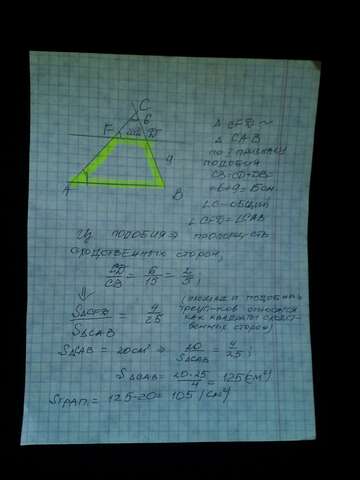 C
6
F
20
D
9
A
B
△ CFD ~
△ CAB
по I признаку
подобия
CB = CD + DB =
= 6 + 9 = 15 см
∠C - общий
∠CFD = ∠CAB
Из подобия ⇒ пропорц-сть
сходственных сторон;
CD/CB = 6/15 = 2/5;
⇓
S△CFD/S△CAB = 4/25
(площади подобных
треуг-ков относятся
как квадраты сходст-
венных сторон)
= 20 см² ⇒ 20/S△CAB = 4/25;
S△CAB = 20·25/4 = 125 (см²)
Sтрап. = 125-20 = 105 (см²)